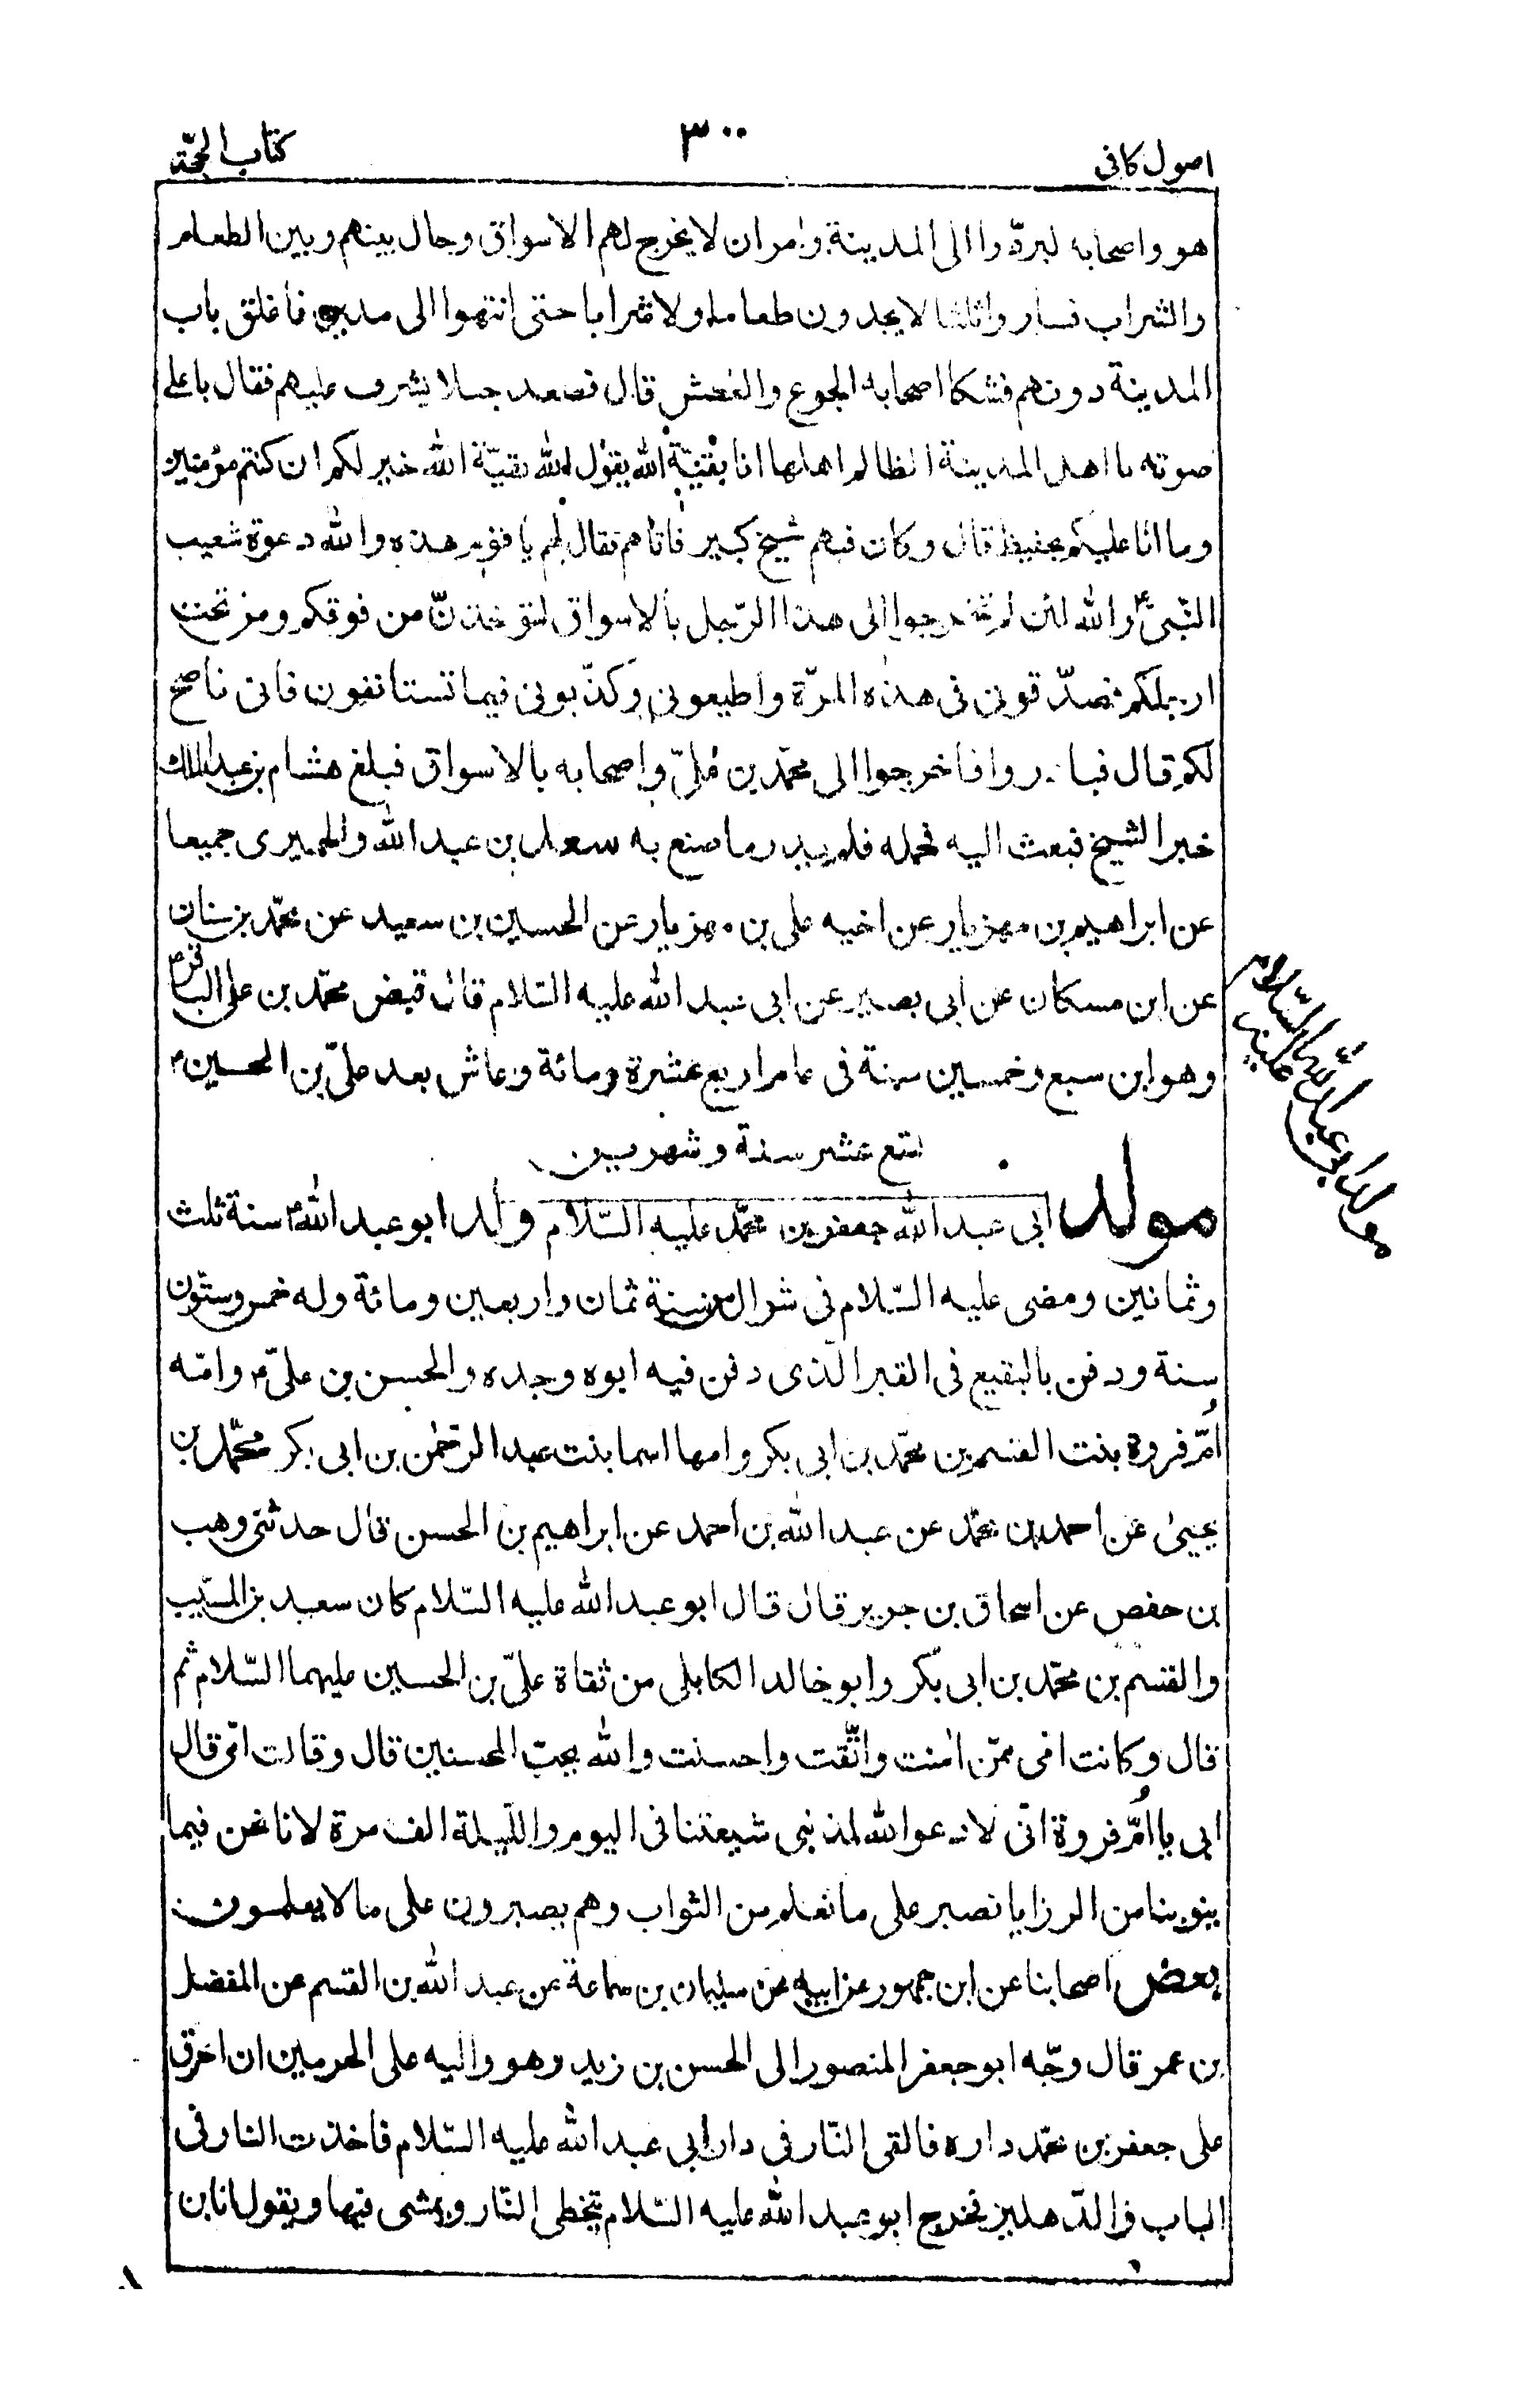 اصول كافى
٣٠٠
كتاب الحجّة
هو واصحابه ليردّوا الى المدينة وامر ان لا يخرج لهم الاسواق وحال بينهم وبين الطعام
والشراب فساروا ثلثا لا يجدون طعاما ولا شرابا حتى انتهوا الى مدين فاغلق باب
المدينة دونهم فشكا اصحابه الجوع والعطش قال فصعد جبلا يشرف عليهم فقال باعلى
صوته يا اهل المدينة الظالم اهلها انا بقيّة الله يقول الله بقيّة الله خير لكم ان كنتم مؤمنين
وما انا عليكم بحفيظ قال وكان فيهم شيخ كبير فاتاهم فقال لهم يا قوم هذه والله دعوة شعيب
النّبىّ ع والله لئن لم تخرجوا الى هذا الرّجل بالاسواق لتؤخذنّ من فوقكم ومن تحت
ارجلكم فصدّقونى فى هذه المرّة واطيعونى وكذّبونى فيما تستانفون فانى ناصح
لكم قال فبادروا فاخرجوا الى محمّد بن علىّ واصحابه بالاسواق فبلغ هشام بن عبد الملك
خبر الشيخ فبعث اليه فحمله فلم يدر ما صنع به سعد بن عبد الله والحميرى جميعا
عن ابراهيم بن مهزيار عن اخيه على بن مهزيار عن الحسين بن سعيد عن محمّد بن سنان
عن ابن مسكان عن ابى بصير عن ابى عبد الله عليه السّلام قال قبض محمّد بن على الباقر ع
وهو ابن سبع وخمسين سنة فى عام اربع عشرة ومائة وعاش بعد علىّ بن الحسين ع
تسع عشر سنة وشهرين
مولد ابى عبد الله جعفر بن محمّد عليه السّلام ولد ابو عبد الله ع سنة ثلث
مولد ابى عبد الله عليه السّلام
وثمانين ومضى عليه السّلام فى شوال من سنة ثمان واربعين ومائة وله خمس وستّون
سنة ودفن بالبقيع فى القبر الّذى دفن فيه ابوه وجده والحسن بن علىّ ع وامّه
اُمّ فروة بنت القسم بن محمّد بن ابى بكر وامها اسما بنت عبد الرّحمٰن بن ابى بكر محمّد بن
يحيىٰ عن احمد بن محمّد عن عبد الله بن احمد عن ابراهيم بن الحسن قال حدثنى وهب
بن حفص عن اسحاق بن جرير قال قال ابو عبد الله عليه السّلام كان سعيد بن المسيّب
والقسم بن محمّد بن ابى بكر وابو خالد الكابلى من ثقاة علىّ بن الحسين عليهما السّلام ثم
قال وكانت امى ممّن اٰمنت واتّقت واحسنت والله يحبّ المحسنين قال وقالت امّى قال
ابى يا اُمّ فروة انّى لادعو الله لمذنبى شيعتنا فى اليوم واللّيلة الف مرة لانا نحن فيما
ينوبنا من الرزايا نصبر على ما نعلم من الثواب وهم يصبرون على ما لا يعلمون
بعض اصحابنا عن ابن جمهور عن ابيه عن سليمان بن سماعة عن عبد الله بن القسم عن المفضل
بن عمر قال وجّه ابو جعفر المنصور الى الحسن بن زيد وهو واليه على الحرمين ان احرق
على جعفر بن محمّد داره فالقى النّار فى دار ابى عبد الله عليه السّلام فاخذت النار فى
الباب والدّهليز فخرج ابو عبد الله عليه السّلام يتخطى النّار ويمشى فيها ويقول انا بن